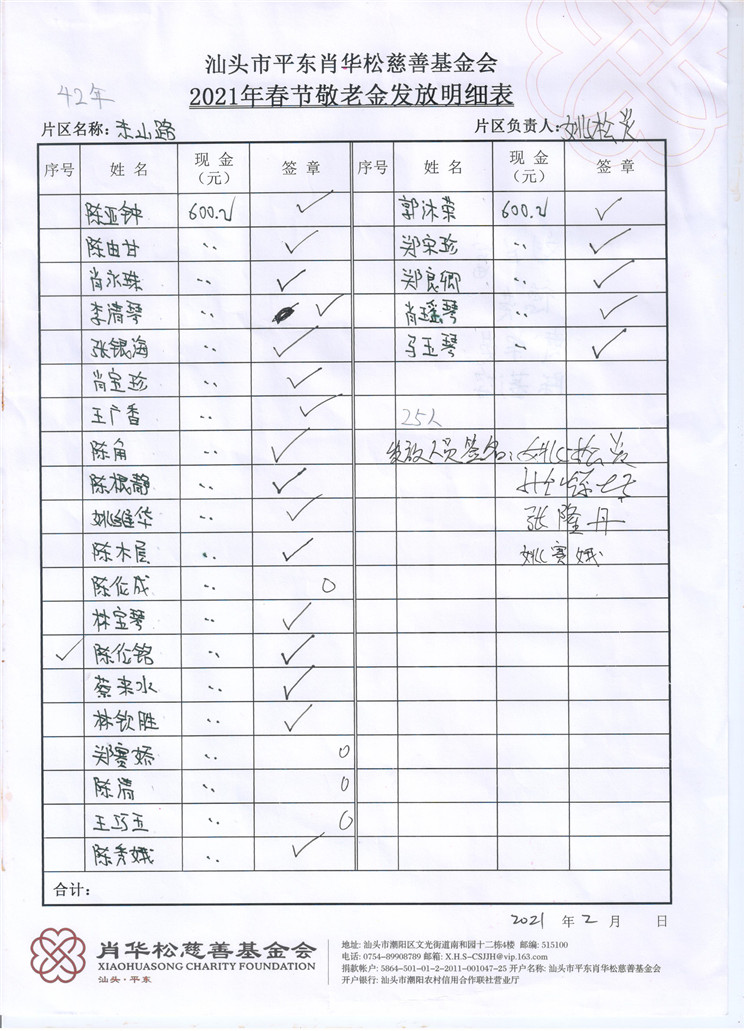 汕头市平东肖华松慈善基金会
42年
2021年春节敬老金发放明细表
片区名称：东山路
片区负责人：姚松发
序号 姓名 现金（元） 签章 序号 姓名 现金（元） 签章
陈亚钟 600.元 ✓ 郭沐荣 600.元 ✓
陈由甘 〃 ✓ 郑宋珍 〃 ✓
肖永珠 〃 ✓ 郑良卿 〃 ✓
李清琴 〃 ✓ 肖瑶琴 〃 ✓
张银海 〃 ✓ 马玉琴 〃 ✓
肖宝珍 〃 ✓
王广香 〃 ✓ 25人
陈角 〃 ✓ 发放人员签名：姚松发
陈根静 〃 ✓
姚维华 〃 ✓ 张隆丹
陈木屋 〃 ✓ 姚赛娥
陈伦成 〃 0
林宝琴 〃 ✓
✓ 陈伦铭 〃 ✓
蔡来水 〃 ✓
林钦胜 〃 ✓
郑赛娇 〃 0
陈清 〃 0
王巧玉 〃 0
陈秀娥 〃 ✓
合计：
2021 年 2 月 日
肖华松慈善基金会
XIAOHUASONG CHARITY FOUNDATION
汕头·平东
地址: 汕头市潮阳区文光街道南和园十二栋4楼 邮编: 515100
电话: 0754-89908789 邮箱: X.H.S-CSJJH@vip.163.com
捐款帐户: 5864-501-01-2-2011-001047-25 开户名称: 汕头市平东肖华松慈善基金会
开户银行: 汕头市潮阳农村信用合作联社营业厅